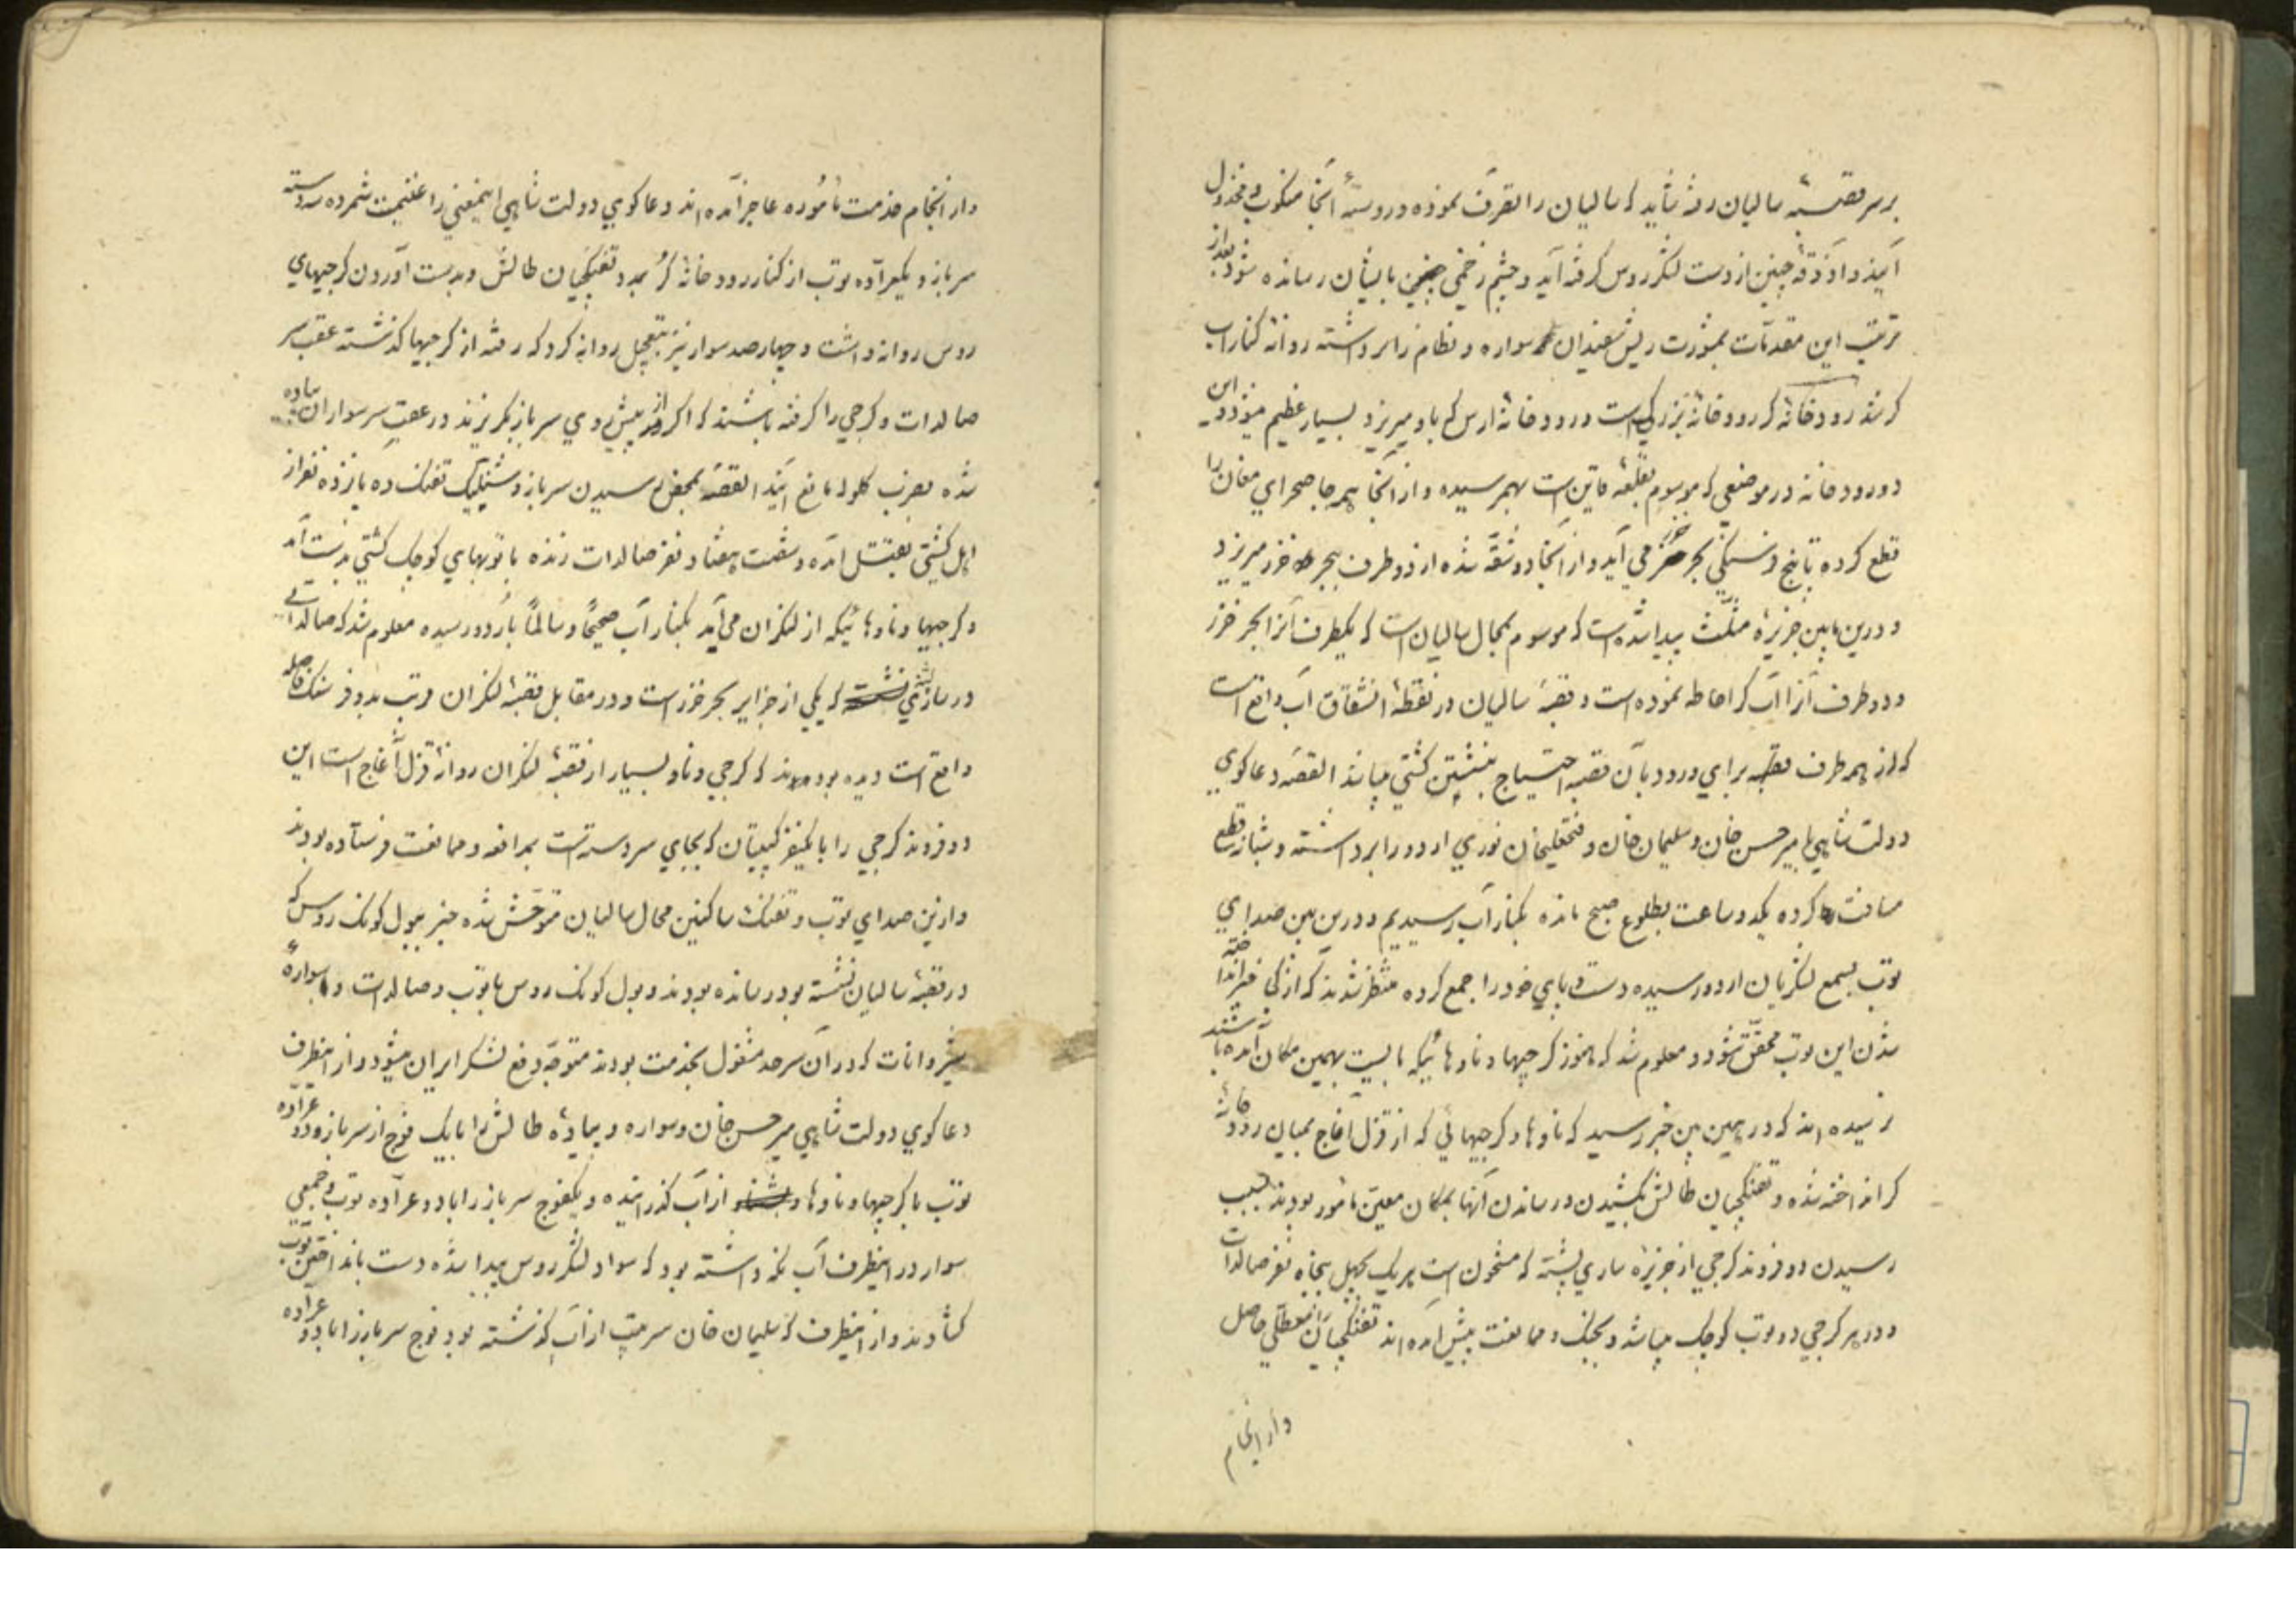 برسر قصبهٔ سالیان رفته شاید که سالیان را تصرف نموده و روسیهٔ آنجا منکوب و مخذول
آیند و آذوقه چنین از دست لشکر روس گرفته آید و چشم زخمی چنین بایشان رسانده شود بعد از
ترتیب این مقدمات بمشورت ریش سفیدان سواره و نظام را برداشته روانه کنار آب
کر شد رودخانه کر رودخانهٔ بزرگی است و رودخانهٔ ارس که باو میریزد بسیار عظیم میشود و این
دو رودخانه در موضعی که موسوم بقلعه است بهم رسیده و از آنجا همه جا صحرای مغان را
قطع کرده تا پنج فرسنگی بحر خزر می آید و از آنجا دو شقه شده از دو طرف ببحر خزر میریزد
و درین مابین جزیرهٔ مثلث پیدا شده است که موسوم بمحال سالیان است که یکطرف آنرا بحر خزر
و دو طرف آنرا آب کر احاطه نموده است و قصبهٔ سالیان در نقطهٔ انشقاق آب واقع است
که از همه طرف قصبه برای ورود بآن قصبه احتیاج بنشستن کشتی میباشد القصه دعاکوی
دولت شاهی با میر حسن خان و سلیمان خان و فتحعلیخان نوری اردو را برداشته و شبانه قطع
مسافت کرده یکدو ساعت بطلوع صبح مانده بکنار آب رسیدیم و درین بین صدای
توپ بسمع لشکریان اردو رسیده دست و پای خود را جمع کرده منتظر شدند که از کی خبر انداخته
شدن این توپ محقق شود و معلوم شد که هنوز کرجیها و ناوهائیکه بایست بهمین مکان آمده باشند
نرسیده اند که در همین بین خبر رسید که ناوها و کرجیهائی که از قزل آغاج بمیان رودخانهٔ
کر انداخته شده و تفنکچیان طالش بکشیدن و رساندن آنها بمکان معین مأمور بودند بسبب
رسیدن دو فروند کرجی از جزیرهٔ ساری پشته که مشحون است هر یک بچهل پنجاه نفر صالدات
و در هر کرجی دو توپ کوچک میباشد و بجنک و ممانعت پیش آمده اند تفنکچیانرا معطلی حاصل
و از انجام
و از انجام خدمت مأموره عاجز آمده اند و دعاکوی دولت شاهی اینمعنی را غنیمت شمرده سه دسته
سرباز و یکعراده توپ از کنار رودخانهٔ کر بمدد تفنکچیان طالش و بدست آوردن کرجیهای
روس روانه داشت و چهارصد سوار نیز بتعجیل روانه کرد که رفته از کرجیها گذشته عقب سر
صالدات و کرجی را گرفته باشند که اگر از پیش روی سرباز بگریزند در عقب سر سواران پیاده
شده بضرب گلوله مانع آیند القصه بمحض رسیدن سرباز و شلیک تفنک ده پانزده نفر از
اهل کشتی بقتل آمده و شصت هفتاد نفر صالدات زنده با توپهای کوچک کشتی بدست آمد
و کرجیها و ناوهائیکه از لنکران می آید بکنار آب صحیحاً و سالماً باردو رسیده معلوم شد که صالداتی
در ساری پشته که یکی از جزایر بحر خزر است و در مقابل قصبهٔ لنکران قریب بدو فرسنک فاصله
واقع است دیده بودند که کرجی و ناو بسیار از قصبهٔ لنکران روانهٔ قزل آغاج است این
دو فروند کرجی را با یکنفر کپیتان که بجای سردسته است بمدافعه و ممانعت فرستاده بودند
و ازین صدای توپ و تفنک ساکنین محال سالیان متوحش شده خبر بپول کونک روس که
در قصبهٔ سالیان نشسته بود رسانده بودند و پول کونک روس با توپ و صالدات و سوارهٔ
شیروانات که در آن سرحد مشغول بخدمت بودند متوجه دفع لشکر ایران میشود و از اینطرف
دعاکوی دولت شاهی میر حسن خان و سواره و پیادهٔ طالش را با یک فوج از سرباز و دو عراده
توپ با کرجیها و ناوها از آب گذرانیده و یکفوج سرباز را با دو عراده توپ و جمعی
سوار در اینطرف آب نکه داشته بود که سواد لشکر روس پیدا شده دست بانداختن توپ
کشادند و از اینطرف که سلیمان خان سرتیپ از آب گذشته بود فوج سرباز را با دو عراده